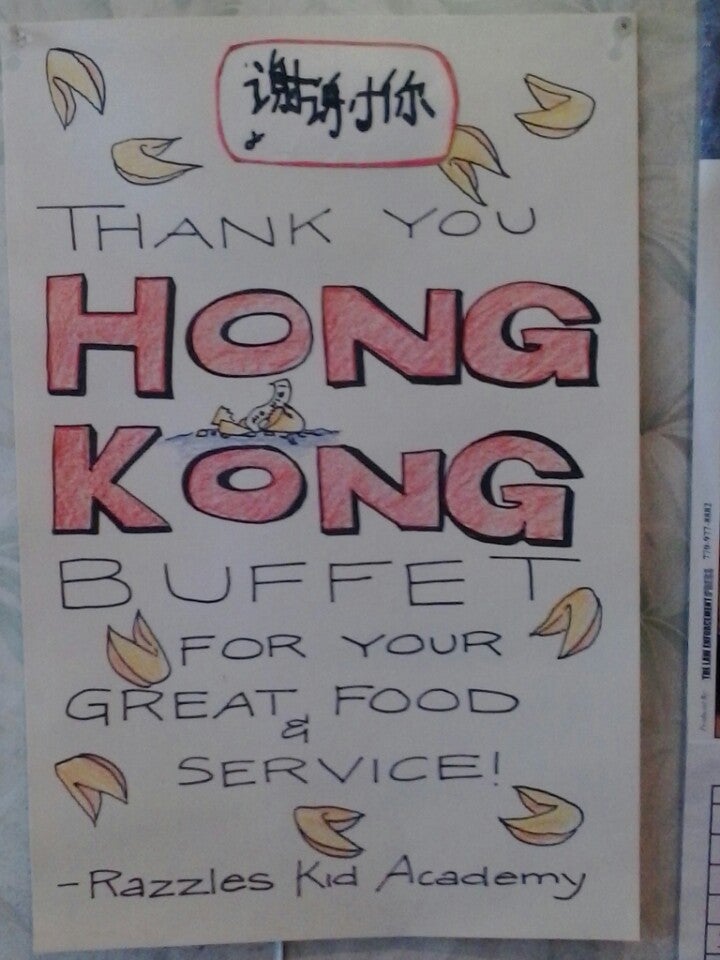 谢谢你
THANK YOU
HONG
KONG
BUFFET
FOR YOUR
GREAT FOOD
&
SERVICE!
-Razzles Kid Academy
THE LAW ENFORCEMENT PRESS 770-977-8882